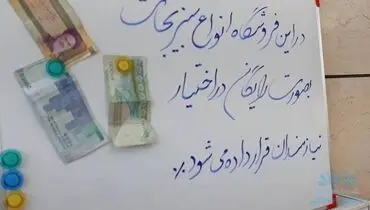 در این فروشگاه انواع سبزیجات
بصورت رایگان در اختیار
نیازمندان قرار داده می شود.٪